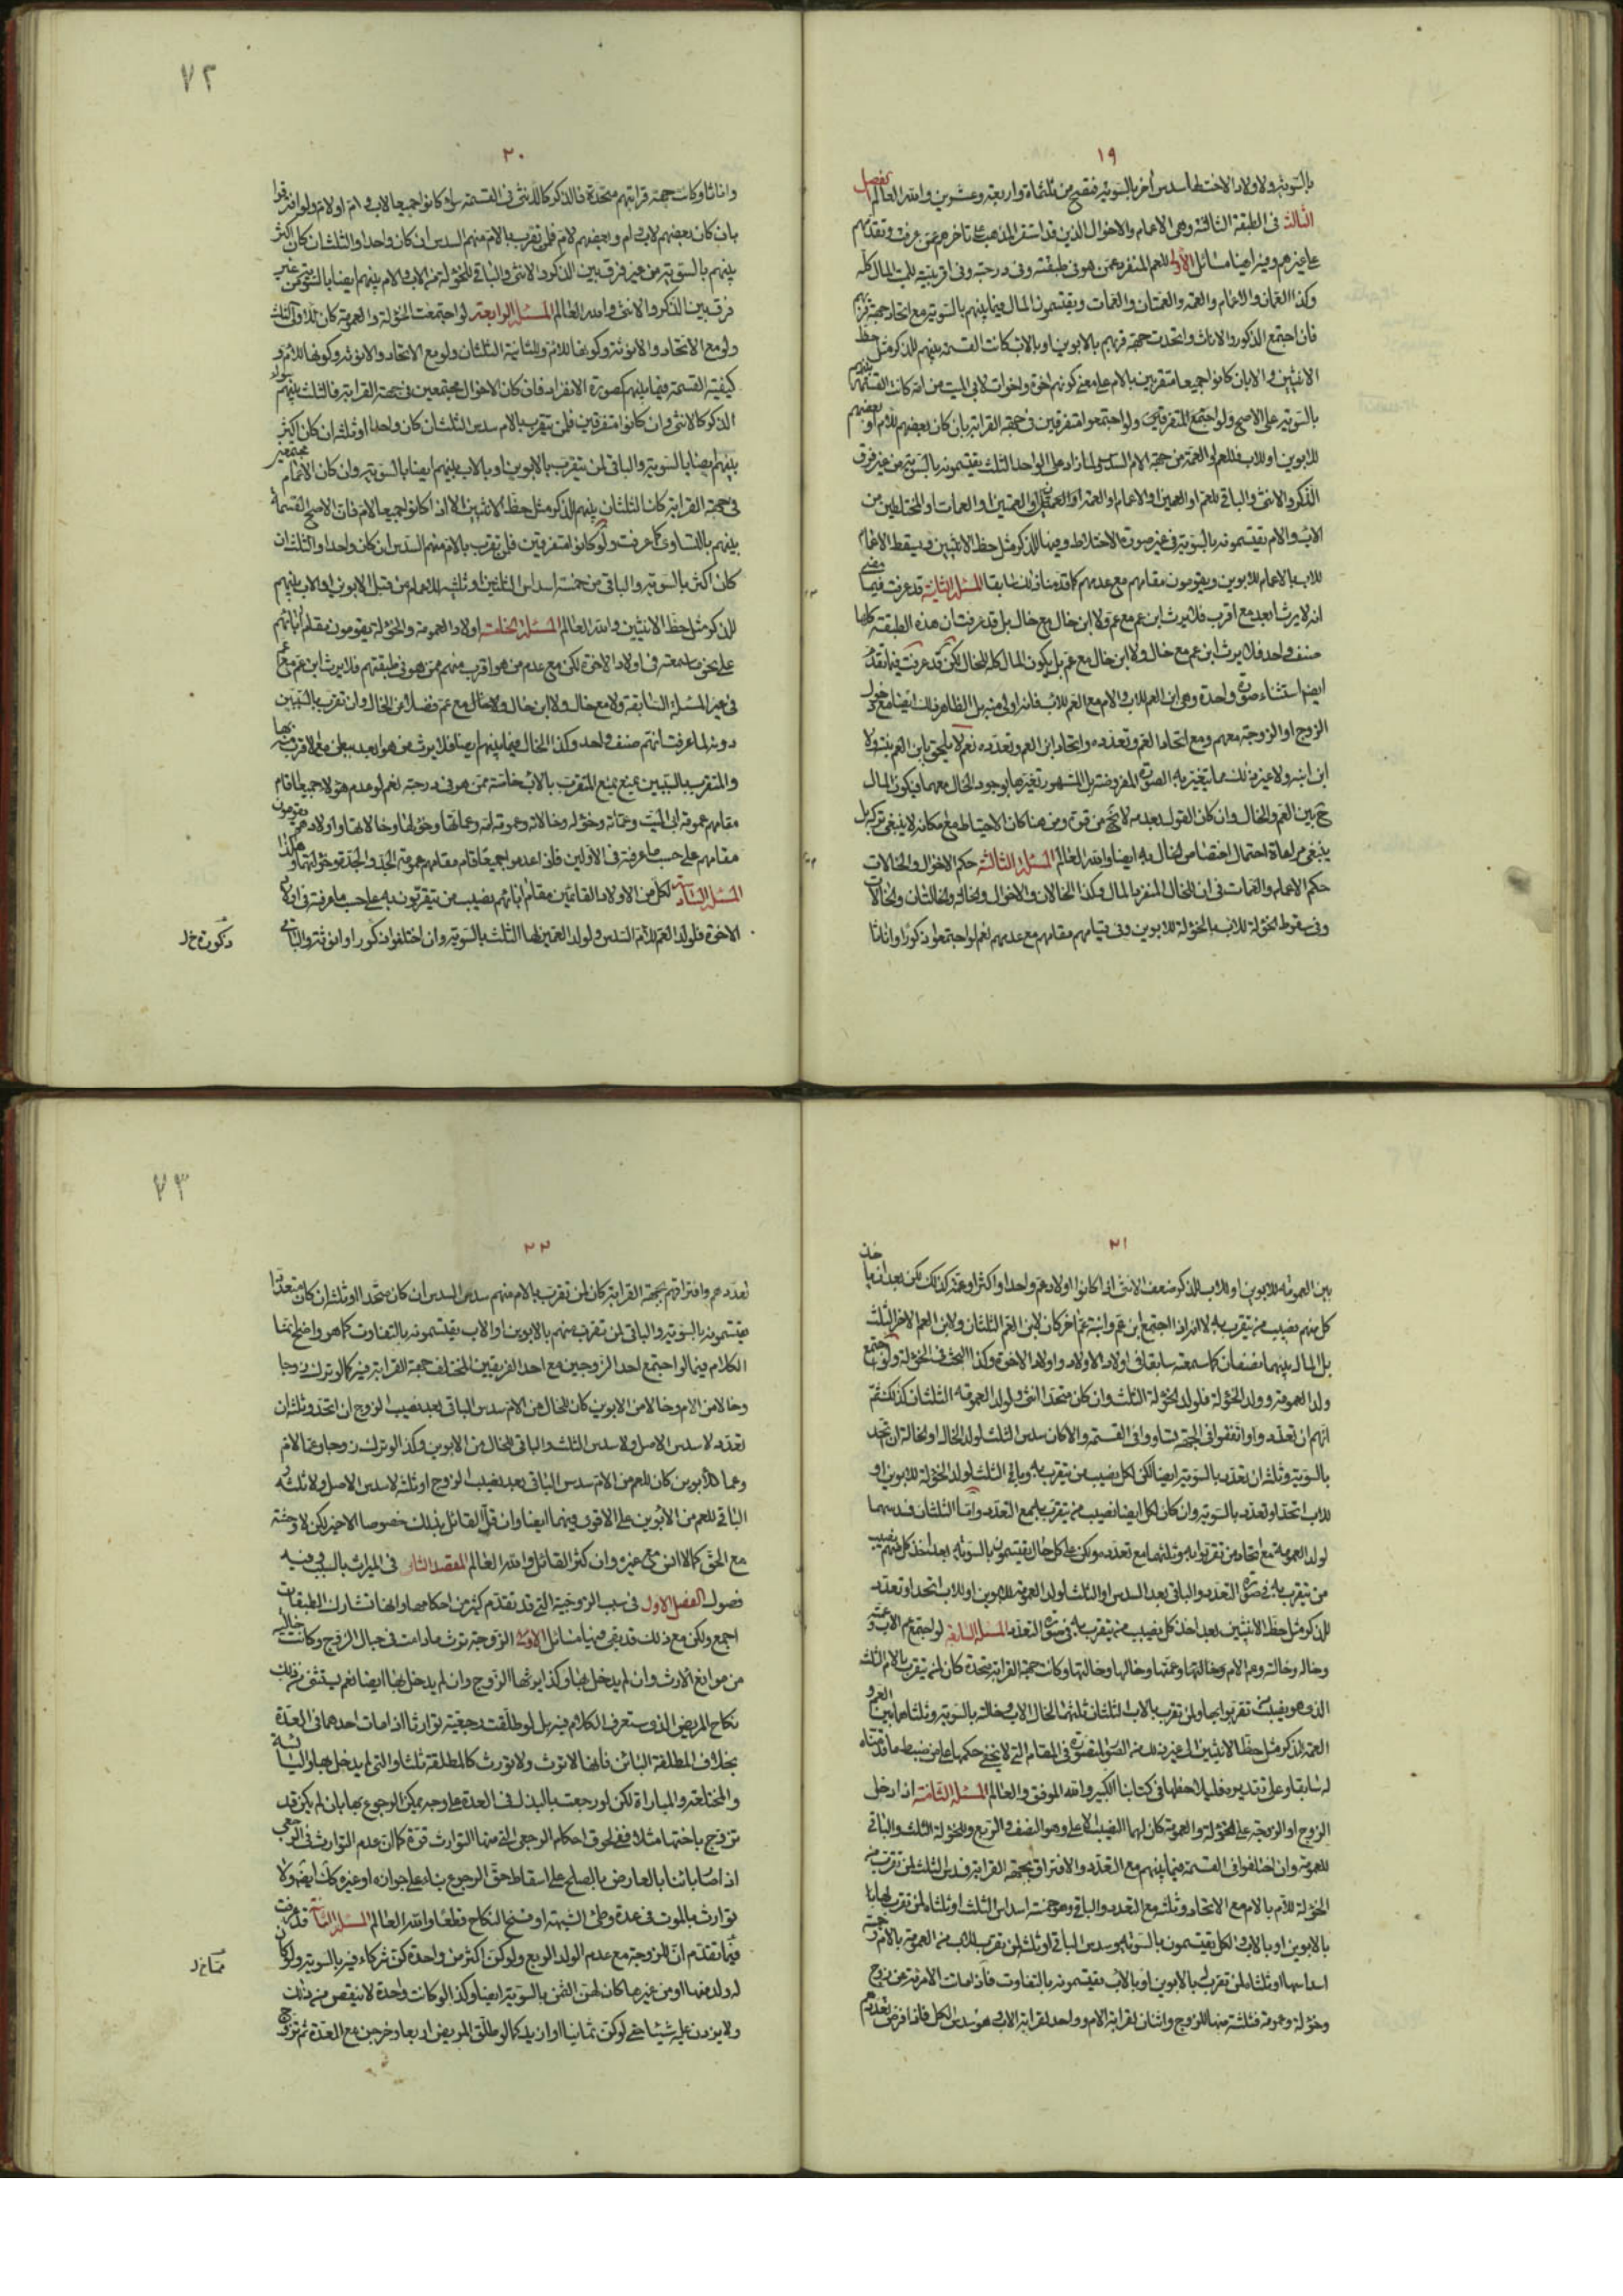 ١٩
بالسوية ولاولاد الاخت لها سدس آخر بالسوية فتصح من ثلثمائة واربعة وعشرين والله العالم الفصل
الثالث فى الطبقة الثالثة وهى الاعمام والاخوال الذين قد استقر المذهب على تاخرهم عمن عرفت وتقدمهم
على غيرهم وفيه ايضا مسائل الأولى للعم المنفرد عمن هو فى طبقته وفى درجته وفى اقربيته للميت المال كله
وكذا العمان والاعمام والعمة والعمتان والعمات ويقتسمون المال فيما بينهم بالسوية مع اتحاد جهة قربهم
فان اجتمع الذكور والاناث واتحدت جهة قربهم بالابوين او بالاب كانت القسمة بينهم للذكر مثل حظ
الانثيين والا بان كانوا جميعا متقربين بالام على معنى كونهم اخوة واخوات لابى الميت من امه كانت القسمة بينهم
بالسوية على الاصح ولو اجتمع المتفرقين ولو اجتمعوا متفرقين فى جهة القرابة بان كان بعضهم للام وبعضهم
للابوين او للاب فللعم او العمة من جهة الام السدس ولما زاد على الواحد الثلث يقتسمونه بالسوية من غير فرق
الذكر والانثى والباقى للعم او العمين او الاعمام او العمة او العمتين او العمات او المختلطين من
الاب والام يقتسمونه بالسوية فى غير صورة الاختلاط وفيها للذكر مثل حظ الانثيين ويسقط الاعمام
للاب بالاعمام للابوين ويقومون مقامهم مع عدمهم كما قدمنا ذلك سابقا المسئلة الثانية قد عرفت فيما مضى
انه لا يرث ابعد مع اقرب فلا يرث ابن عم مع عم ولا ابن خال مع خال بل قد عرفت ان هذه الطبقة كلها
صنف واحد فلا يرث ابن عم مع خال ولا ابن خال مع عم بل يكون المال كله للخال لكن قد عرفت فيما تقدم
ايضا استثناء صورة واحدة وهى ابن العم للاب والام مع العم للاب فانه اولى منه بل الظاهر ذلك ايضا مع دخول
الزوج او الزوجة معهم ومع اتحاد العم وتعدده واتحاد ابن العم وتعدده نعم لا يلحق بابن العم بنته ولا
ابن ابنه ولا غير ذلك مما يتغير به الصورة المفروضة بل المشهور تغيرها بوجود الخال معهما فيكون المال
ح بين العم والخال وان كان القول بعدمه لا يخ من قوة ومن هنا كان الاحتياط مع امكانه لا ينبغى تركه بل
ينبغى مراعاة احتمال اختصاص الخال به ايضا والله العالم المسئلة الثالثة حكم الاخوال والخالات
حكم الاعمام والعمات فى ان للخال المنفرد المال وكذا الخالان والاخوال والخالة والخالتان والخالات
وفى سقوط الخؤلة للاب بالخؤلة للابوين وفى قيامهم مقامهم مع عدمهم نعم لو اجتمعوا ذكورا واناثا
٧٢
٢٠
واناثا وكانت جهة قرابتهم متحدة فالذكر كالانثى فى القسمة سواء كانوا جميعا لاب وام او لام ولو افترقوا
بان كان بعضهم لاب وام وبعضهم لام فلمن تقرب بالام منهم السدس ان كان واحدا والثلث ان كان اكثر
بينهم بالسوية من غير فرق بين الذكر والانثى والباقى للخؤلة من الاب والام بينهم ايضا بالسوية من غير
فرق بين الذكر والانثى والله العالم المسئلة الرابعة لو اجتمعت الخؤلة والعمومة كان للاولى الثلث
ولو مع الاتحاد والانوثة وكونها للام وللثانية الثلثان ولو مع الاتحاد والانوثة وكونها للام و
كيفية القسمة فيما بينهم كصورة الانفراد فان كان الاخوال مجتمعين فى جهة القرابة فالثلث بينهم سواء
الذكر كالانثى وان كانوا متفرقين فلمن يتقرب بالام سدس الثلث ان كان واحدا او ثلثه ان كان اكثر
بينهم ايضا بالسوية والباقى لمن يتقرب بالابوين او بالاب بينهم ايضا بالسوية وان كان الاعمام مجتمعين
فى جهة القرابة كان الثلثان بينهم للذكر مثل حظ الانثيين الا اذا كانوا جميعا لام فان الاصح القسمة
بينهم بالتساوى كما عرفت ولو كانوا متفرقين فلمن تقرب بالام منهم السدس ان كان واحدا والثلث ان
كان اكثر بالسوية والباقى من خمسة اسداس الثلثين او ثلثيه للاعمام من قبل الابوين او الاب بينهم
للذكر مثل حظ الانثيين والله العالم المسئلة الخامسة اولاد العمومة والخؤلة يقومون مقام آبائهم
على نحو ما سمعته فى اولاد الاخوة لكن مع عدم من هو اقرب منهم ممن هو فى طبقتهم فلا يرث ابن عم مع عم
فى غير المسئلة السابقة ولا مع خال ولا ابن خال ولا خال مع عم فضلا عن الخال وان تقرب بالسببين
دونه لما عرفت انهم صنف واحد وكذا الخال فيما بينهم ايضا فلا يرث من هو ابعد ببطن مع الاقرب منه بها
والمتقرب بالسببين يمنع المتقرب بالاب خاصة ممن هو فى درجته نعم لو عدم هؤلاء جميعا قام
مقامهم عمومة ابى الميت وعماته وخؤله وخالاته وعمومة امه وعماتها وخؤلها وخالاتها واولادهم يقومون
مقامهم على حسب ما عرفته فى الاولين فاذا عدموا جميعا قام مقامهم عمومة الجد والجدة وخؤلتهما وهكذا
المسئلة السادسة لكل من الاولاد القائمين مقام آبائهم نصيب من يتقربون به على حسب ما عرفته فى اولاد
الاخوة فلولد العم للام السدس ولولد العمين لها الثلث بالسوية وان اختلفوا ذكورا وانوثة والباقى
ذكورة خ ل
٢١
بين العمومة للابوين او للاب للذكر ضعف الانثى اذا كانوا اولاد عم واحد او اكثر او عمة كذلك لكن بعد ان ياخذ
كل منهم نصيب من يتقرب به لا انه اذا اجتمع ابن عم وابنة عم آخر كان لابن العم الثلثان ولابن العم الاخر الثلث
بل المال بينهما نصفان كما سمعته سابقا فى اولاد الاولاد واولاد الاخوة وكذا البحث فى الخؤلة ولو اجتمع
ولد العمومة وولد الخؤلة فلولد الخؤلة الثلث وان كان متحدا انثى ولولد العمومة الثلثان كذلك ثم
انهم ان تعددوا واتفقوا فى الجهة تساووا فى القسمة والا كان سدس الثلث لولد الخال او الخالة ان اتحد
بالسوية وثلثه ان تعدد بالسوية ايضا لكن لكل نصيب من يتقرب به وباقى الثلث لولد الخؤلة للابوين او
للاب اتحد او تعدد بالسوية وان كان لكل ايضا نصيب من يتقرب به مع التعدد واما الثلثان فسدسهما
لولد العمومة مع اتحاد من تقربوا به وثلثهما مع تعدده ولكن على كل حال يقتسمونه بالسوية بعد اخذ كل منهم نصيب
من يتقرب به فى صورة التعدد والباقى بعد السدس او الثلث لولد العمومة للابوين او للاب اتحد او تعدد
للذكر مثل حظ الانثيين بعد اخذ كل نصيب من يتقرب به فى صورة التعدد المسئلة السابعة لو اجتمع عم الاب وعمته
وخاله وخالته وعم الام وعمتها وخالها وخالتها وكانت جهة القرابة متحدة كان لمن يتقرب بالام الثلث
الذى هو نصيب من تقربوا بها ولمن تقرب بالاب الثلثان ثلثهما لخال الاب وخالته بالسوية وثلثاهما بين العم و
العمة للذكر مثل حظ الانثيين الى غير ذلك من الصور المتصورة فى المقام التى لا يخفى حكمها على من ضبط ما قدمناه
له سابقا وعلى تقديره فليلاحظها فى كتابنا الكبير والله الموفق والعالم المسئلة الثامنة اذا دخل
الزوج او الزوجة على الخؤلة والعمومة كان لهما النصيب الاعلى وهو النصف والربع وللخؤلة الثلث والباقى
للعمومة وان اختلفوا فى القسمة فيما بينهم مع التعدد والافتراق بجهة القرابة فسدس الثلث لمن تقرب من
الخؤلة للام بالام مع الاتحاد وثلثه مع التعدد والباقى وهو خمسة اسداس الثلث او ثلثاه لمن تقرب لها بها
بالابوين او بالاب والكل يقتسمون بالسوية وسدس الباقى او ثلثه لمن تقرب للاب من العمومة بالام وخمسة
اسداسها او ثلثاه لمن تقرب بالابوين او بالاب يقتسمونه بالتفاوت فاذا ماتت الامرئة عن زوج
وخؤلة وعمومة فثلثة منها للزوج واثنان لقرابة الام وواحد لقرابة الاب هو سدس الكل فاذا فرض تعددهم
٧٣
٢٢
تعددهم وافتراقهم بجهة القرابة كان لمن تقرب بالام منهم سدس السدس ان كان متحدا او ثلثه ان كان متعددا
يقتسمونه بالسوية والباقى لمن تقرب منهم بالابوين او الاب يقتسمونه بالتفاوت كما هو واضح نعم انما
الكلام فيما لو اجتمع احد الزوجين مع احد الفريقين المختلف جهة القرابة فيه كما لو ترك زوجا
وخالا من الام وخالا من الابوين كان للخال من الام سدس الباقى بعد نصيب الزوج ان اتحد وثلثه ان
تعدد لا سدس الاصل ولا سدس الثلث والباقى للخال من الابوين وكذا لو ترك زوجا وعما لام
وعما للابوين كان للعم من الام سدس الباقى بعد نصيب الزوج او ثلثه لا سدس الاصل ولا ثلثه و
الباقى للعم من الابوين على الاقوى فيهما ايضا وان قل القائل بذلك خصوصا الاخير لكن لا وحشة
مع الحق كما لا انس مع غيره وان كثر القائل والله العالم المقصد الثانى فى الميراث بالسبب وفيه
فصول الفصل الاول فى سبب الزوجية التى قد تقدم كثير من احكامها وانها تشارك الطبقات
اجمع ولكن مع ذلك قد بقى فيها مسائل الاولى الزوجة ترث ما دامت فى حبال الزوج وكانت خالية
من موانع الارث وان لم يدخل بها وكذا يرثها الزوج وان لم يدخل بها ايضا نعم يستثنى من ذلك
نكاح المريض الذى ستعرف الكلام فيه بل لو طلقت رجعية توارثا اذا مات احدهما فى العدة
بخلاف المطلقة البائن فانها لا ترث ولا تورث كالمطلقة ثلثا والتى لم يدخل بها واليائسة
والمختلعة والمباراة لكن لو رجعت بالبذل فى العدة على وجه يمكن الرجوع بها بان لم يكن قد
تزوج باختها مثلا ففى لحوق احكام الرجعى التى منها التوارث قوة كما ان عدم التوارث فى الرجعى
اذا صار بائنا بالعارض بالصلح على اسقاط حق الرجوع بناء على جوازه او غيره كان ايضا ولا
توارث بالموت فى عدة وطى الشبهة او فسخ النكاح قطعا والله العالم المسئلة الثانية قد عرفت
فيما تقدم ان للزوجة مع عدم الولد الربع ولو كن اكثر من واحدة كن شركاء فيه بالسوية ولو كان
له ولد منها او من غيرها كان لهن الثمن بالسوية ايضا وكذا لو كانت واحدة لا ينقص منه ذلك
ولا يزدن عليه شيئا حتى لو كن ثمانيا او ازيد كما لو طلق المريض اربعا وخرجن مع العدة ثم تزوج
مما خ ل